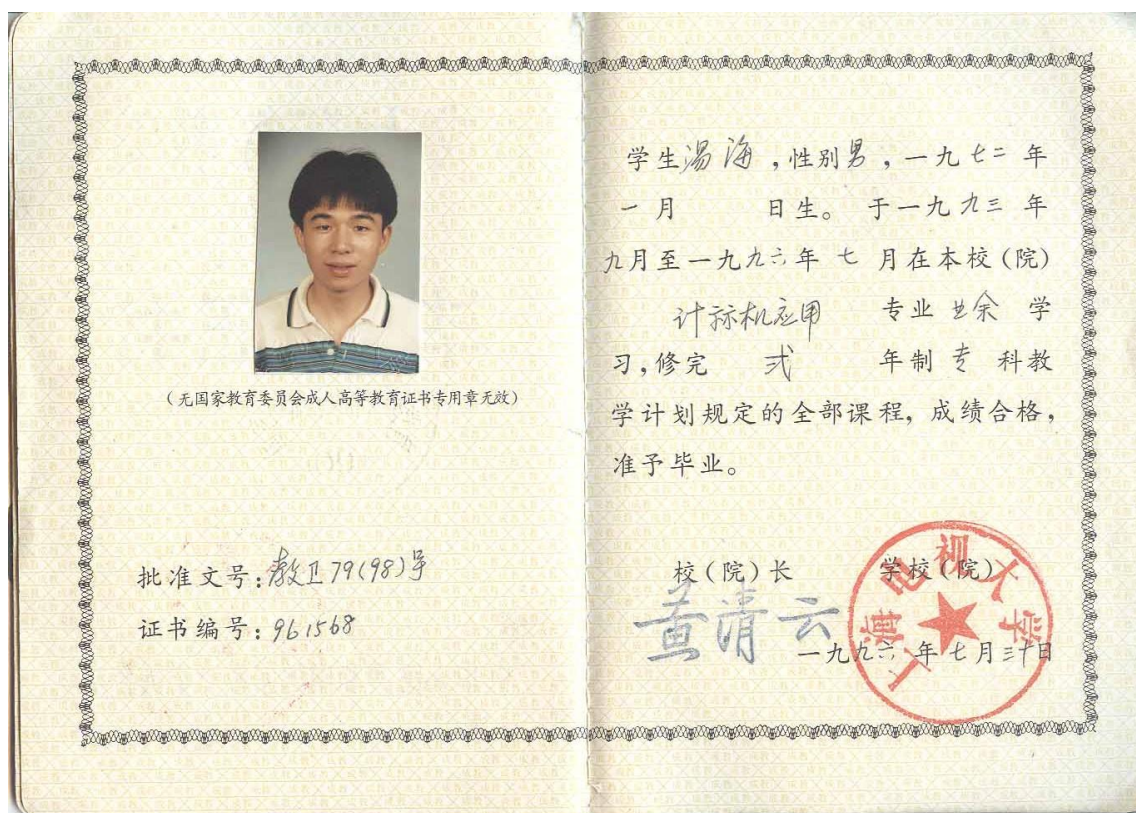 (无国家教育委员会成人高等教育证书专用章无效)
批准文号:教卫79(98)号
证书编号:961568
学生汤海,性别男,一九七二年
一月 日生。于一九九三年
九月至一九九六年七月在本校(院)
计标机应用 专业业余学
习,修完 弍 年制专科教
学计划规定的全部课程,成绩合格,
准予毕业。
校(院)长 学校(院)
黄清云
一九九六年七月三十日
上海电视大学